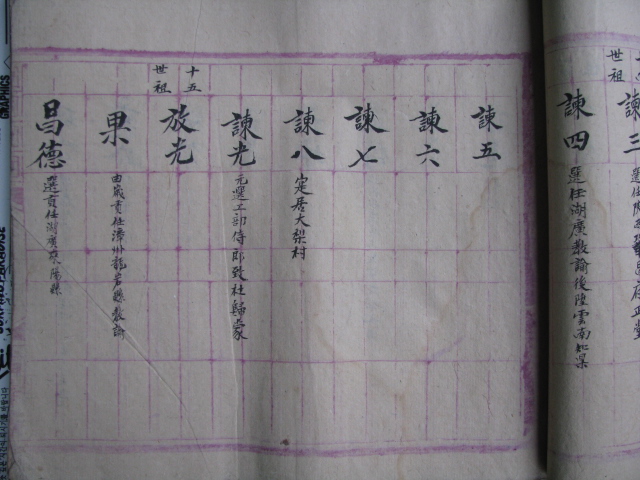 諫三
諫四 選任湖廣教諭後陞雲南知縣
世祖
諫五
諫六
諫七
諫八 定居大梨村
諫光 元選工部侍郎致杜歸蒙
十五世祖
放光
果 由歲貢任漳州龍岩縣教諭
昌德 選貢任湖廣棗陽縣